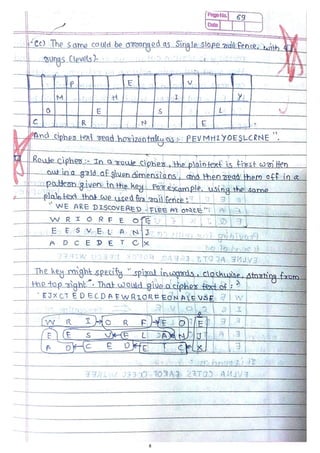 Page No. 59
Date
(c) The same could be arranged as Single slope rail fence, with 4
rungs (levels)
P E V
M H I Y
O E S L
C R N E
And cipher text read horizontally as :- PEVMHIYOESLCRNE ".
Route cipher :- In a route cipher, the plaintext is first written
out in a grid of given dimensions, and then read them off in a
pattern given in the key. For example, using the same
plaintext that we used for rail fence :
" WE ARE DISCOVERED . FLEE AT ONCE "
W R I O R F E O E
E E S V E L A N J
A D C E D E T C X
The key might specify " spiral inwards, clockwise, starting from
the top right ". That would give a cipher text of :
" EJXCTEDECDAEWRIORFEONALEVSE
W R I O R F E O E
E E S V E L A N J
A D C E D E T C X
8